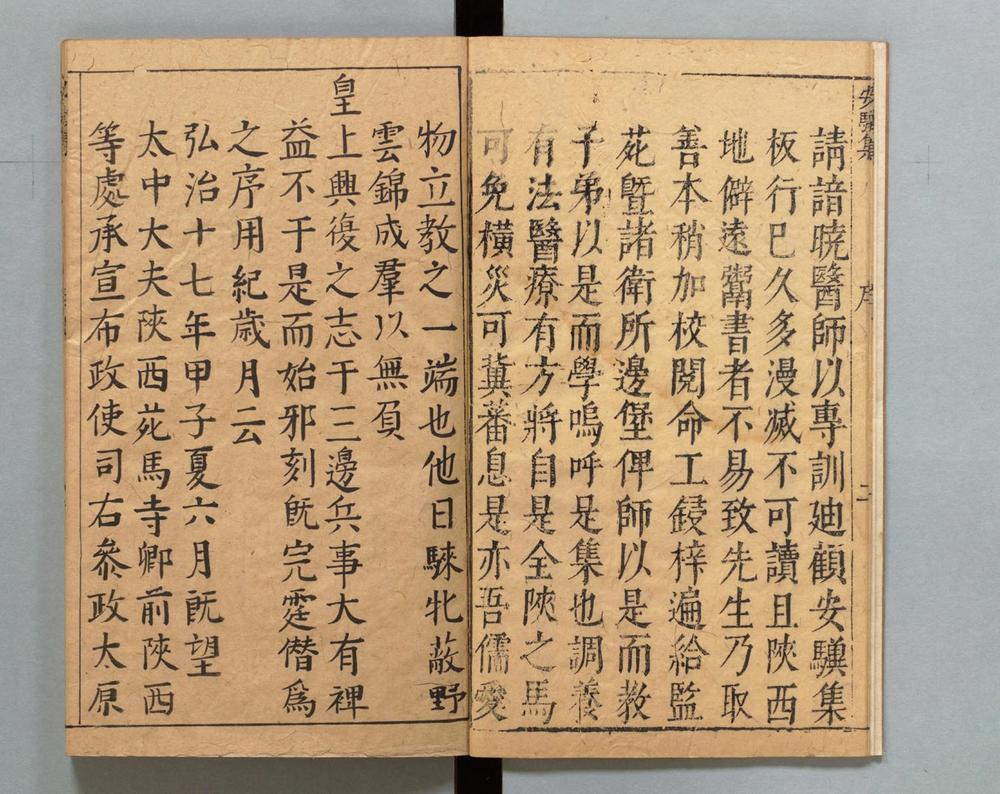 安驥集
序
二
請諳曉醫師以專訓廸顧安驥集
板行巳久多漫滅不可讀且陝西
地僻遠鬻書者不易致先生乃取
善本稍加校閱命工鋟梓遍給監
苑曁諸衛所邊堡俾師以是而教
子弟以是而學嗚呼是集也調養
有法醫療有方將自是全陝之馬
可免横災可冀蕃息是亦吾儒愛
物立教之一端也他日騋牝蔽野
雲錦成羣以無負
皇上興復之志于三邊兵事大有裨
益不于是而始邪刻旣完霆僭爲
之序用紀歲月云
弘治十七年甲子夏六月旣望
太中大夫陝西苑馬寺卿前陝西
等處承宣布政使司右叅政太原